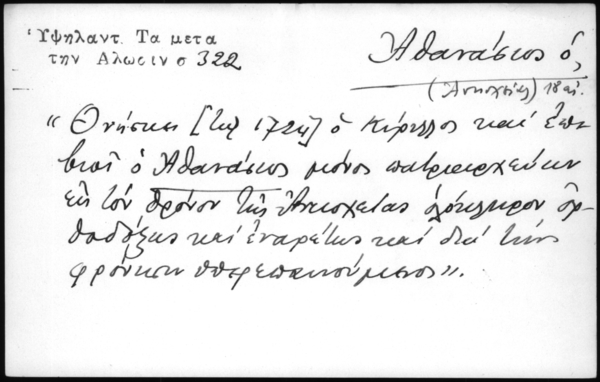 Ὑψηλαντ. Τα μετα
την Αλωσιν σ 322
Ἀθανάσιος ὁ,
(Ἀντιοχείας) 18 αἰ.
« Θνήσκει [τῷ 1724] ὁ Κύριλλος καὶ ἐπι-
βιοῖ ὁ Ἀθανάσιος μόνος πατριαρχεύων
εἰς τὸν θρόνον τῆς Ἀντιοχείας ὁλόκληρον ὀρ-
θοδόξως καὶ ἐναρέτως καὶ διὰ τὴν
φρόνησιν ὑπερεπαινούμενος».